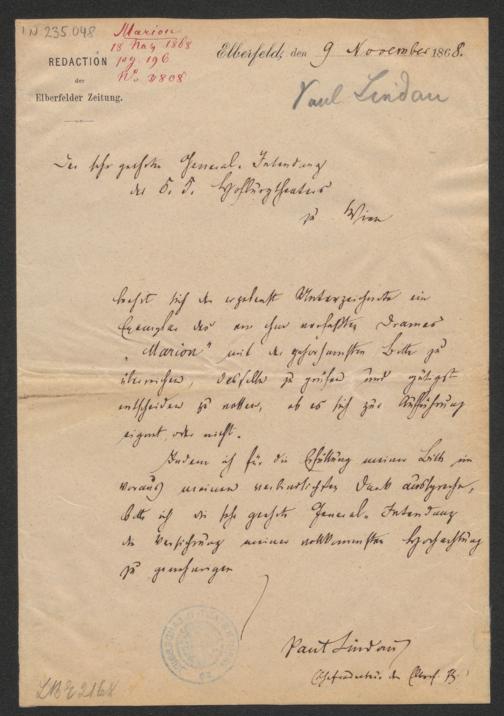 IN 235048
Marion
18 Nov 1868
pg. 196
No. 3808
REDACTION
der
Elberfelder Zeitung.
Elberfeld, den 9 November 1868.
Paul Lindau
Der sehr geehrten General-Intendanz
des K. K. Hofburgtheaters
zu Wien
beehrt sich der ergebenst Unterzeichnete ein
Exemplar des von ihm verfaßten Dramas
„Marion" mit der gehorsamsten Bitte zu
überreichen, dasselbe zu prüfen und gütigst
entscheiden zu wollen, ob es sich zur Aufführung
eignet, oder nicht.
Indem ich für die Erfüllung meiner Bitte im
voraus meinen verbindlichsten Dank ausspreche,
bitte ich die sehr geehrte General-Intendanz
die Versicherung meiner vollkommensten Hochachtung
zu genehmigen
Paul Lindau
Chefredacteur der Elberf. Ztg.